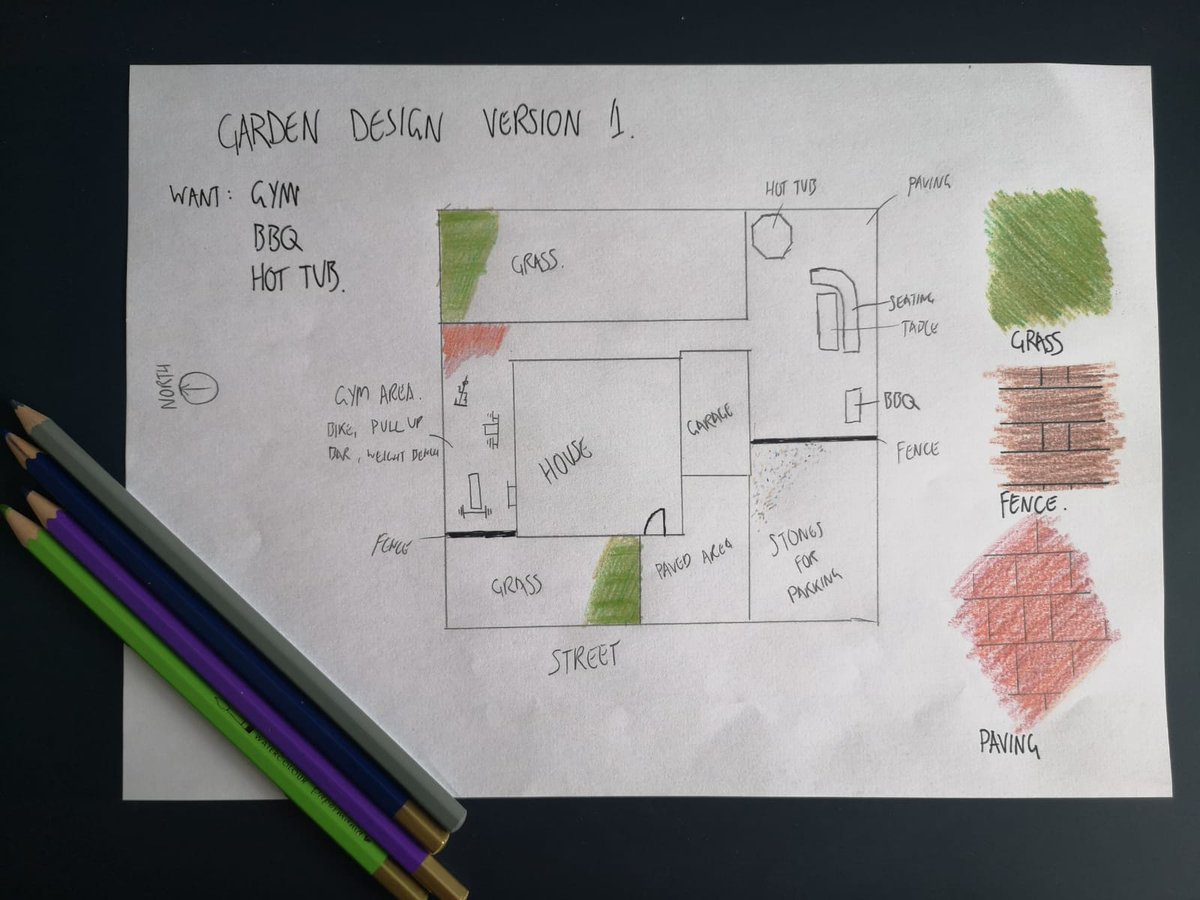 GARDEN DESIGN VERSION 1.
WANT: GYM
BBQ
HOT TUB.
HOT TUB
PAVING
GRASS.
SEATING
TABLE
GRASS
NORTH
GYM AREA.
BIKE, PULL UP
BAR, WEIGHT BENCH
HOUSE
GARAGE
BBQ
FENCE
FENCE.
FENCE
GRASS
PAVED AREA
STONES
FOR
PARKING
STREET
PAVING